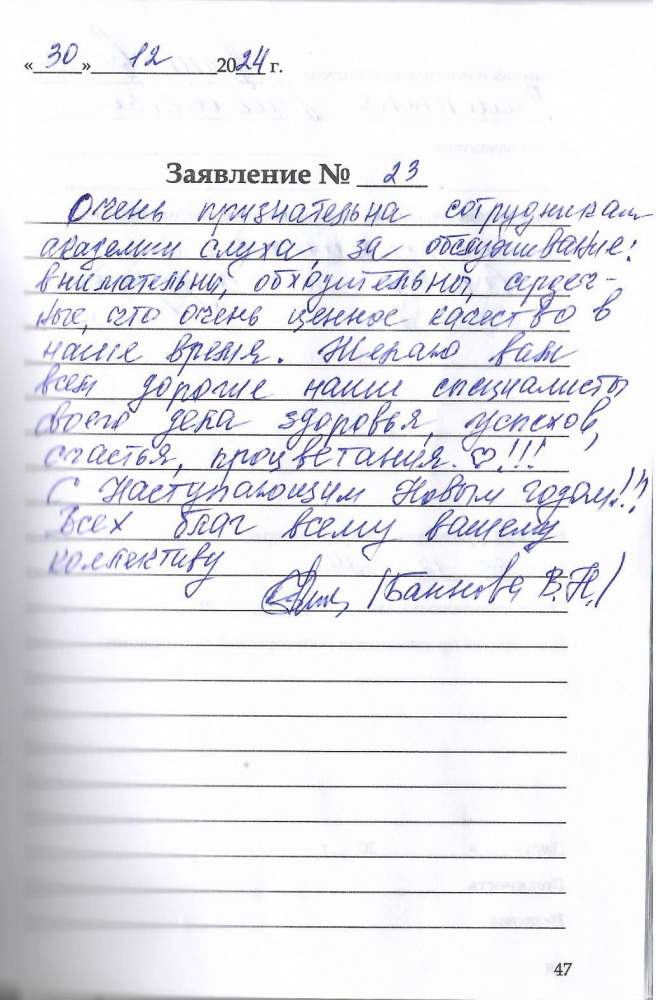 «30» 12 2024 г.
Заявление № 23
Очень признательна сотрудникам
академии слуха за обслуживание:
внимательны, обходительны, сердеч-
ные, что очень ценное качество в
наше время. Желаю вам
всем дорогие наши специалисты
своего дела здоровья, успехов,
счастья, процветания.♡!!!
С Наступающим Новым годом!!!
Всех благ всему вашему
коллективу
/Баннова В.Н./
47